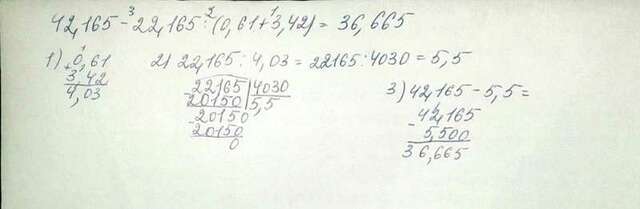 42,165 - 22,165 : (0,61 + 3,42) = 36,665
3 2 1
1) 0,61 2) 22,165 : 4,03 = 22165 : 4030 = 5,5
+
3,42
4,03
- 22165 | 4030
20150 | 5,5
- 20150
20150
0
3) 42,165 - 5,5 =
- 42,165
5,500
36,665